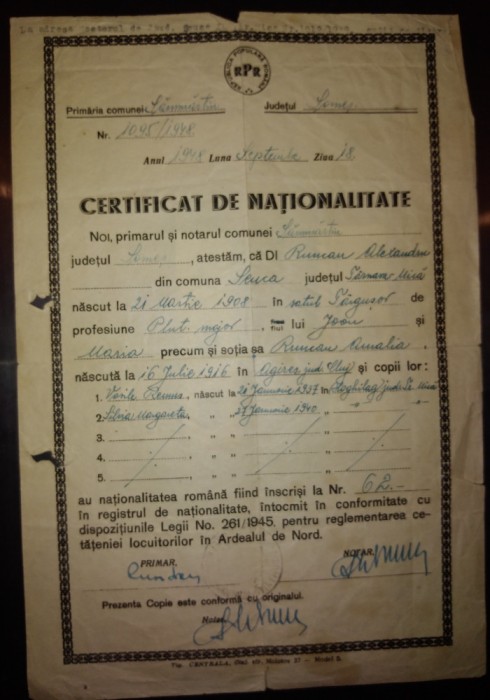 REPUBLICA POPULARĂ ROMÂNĂ
RPR
Primăria comunei Sânmărtin Județul Someș
Nr. 1095/1948
Anul 1948 Luna Septembrie Ziua 18
CERTIFICAT DE NAȚIONALITATE
Noi, primarul și notarul comunei Sânmărtin
județul Someș, atestăm, că Dl Runcan Alexandru
din comuna Seuca județul Târnava Mică
născut la 21 Martie 1908 în satul Târgușor de
profesiune Plut. major, fiul lui Ioan și
Maria precum și soția sa Runcan Amalia,
născută la 16 Iulie 1916 în Agireș jud. Cluj și copii lor:
1. Vasile Remus, născut la 21 Ianuarie 1937 în jud. Tr. Mică
2. Silvia Margareta, " " 27 Ianuarie 1940. " "
3. " "
4. " "
5. " "
au naționalitatea română fiind înscriși la Nr. 62.-
în registrul de naționalitate, întocmit în conformitate cu
dispozițiunile Legii No. 261/1945, pentru reglementarea ce-
tățeniei locuitorilor în Ardealul de Nord.
PRIMAR, NOTAR,
Prezenta Copie este conformă cu originalul.
Notar
Tip. CENTRALA, Cluj str. Molotov 27 — Model 2.